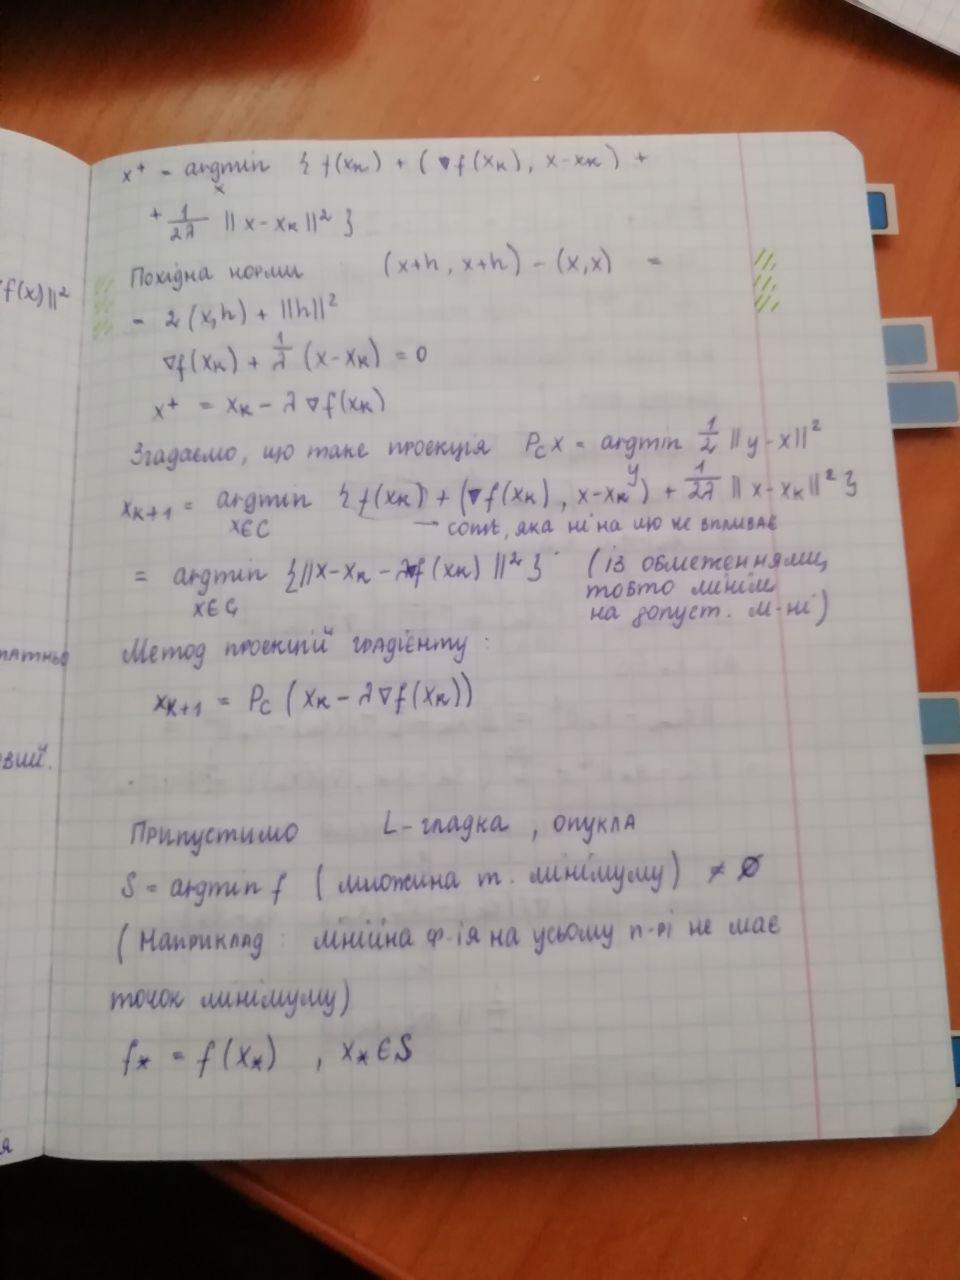 f(x)||²
татньо
овий.
я
x⁺ = argmin {f(xₖ) + (∇f(xₖ), x-xₖ) +
x
+ 1/2λ ||x-xₖ||²}
Похідна норми (x+h, x+h) - (x,x) =
= 2(x,h) + ||h||²
∇f(xₖ) + 1/λ (x-xₖ) = 0
x⁺ = xₖ - λ∇f(xₖ)
Згадаємо, що таке проекція P_C x = argmin 1/2 ||y-x||²
y
xₖ₊₁ = argmin {f(xₖ) + (∇f(xₖ), x-xₖ) + 1/2λ ||x-xₖ||²}
x∈C → const, яка ні на що не впливає
= argmin {||x-xₖ-λ∇f(xₖ)||²} (із обмеженнями,
x∈C тобто мінім.
на допуст. м-ні)
Метод проекцій градієнту:
xₖ₊₁ = P_C (xₖ - λ∇f(xₖ))
Припустимо L-гладка, опукла
S = argmin f (множина т. мінімуму) ≠ ∅
(Наприклад: лінійна ф-ія на усьому п-рі не має
точок мінімуму)
f* = f(x*), x* ∈ S